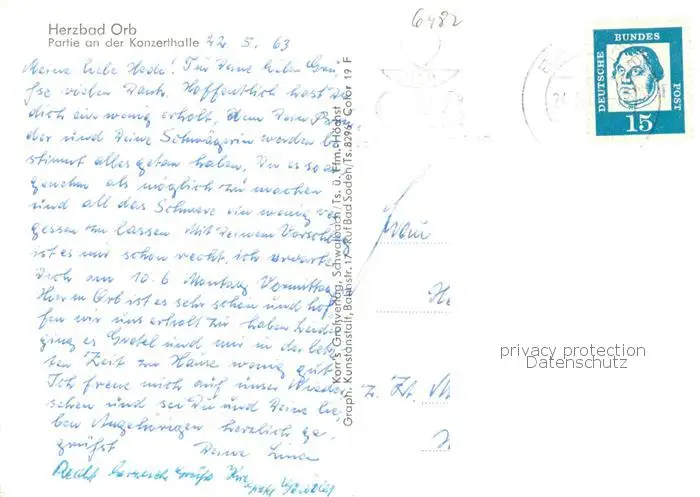 Herzbad Orb
Partie an der Konzerthalle 22. 5. 63
6482
Meine liebe Hede! Für Deine lieben Grü-
sse vielen Dank. Hoffentlich hast Du
dich ein wenig erholt, denn Dein Bru
der und Deine Schwägerin werden be
stimmt alles getan haben, Dir es so an
genehm als möglich zu machen
und all das Schwere ein wenig ver
gessen zu lassen. Mit Deinem Vorschlag
ist es mir schon recht, ich erwarte
Dich am 10.6 Montag Vormittag.
Hier in Orb ist es sehr schön und hof
fen wir uns erholt zu haben. Leider
ging es Gretel und mir in der letz
ten Zeit zu Hause wenig gut.
Ich freue mich auf unser Wieder
sehen und sei Du und Deine lie
ben Angehörigen herzlich ge-
grüßt Deine Lina
Recht herzliche Grüße
Graph. Kunstanstalt, Bahnstr. 17 · Ruf Bad Soden/Ts. 8296 Color 19 F
Korr's Großverlag, Schwalbach/Ts. ü. Ffm.-Höchst
DEUTSCHE
BUNDES
POST
15
Frau
He
z. Zt. M
privacy protection
Datenschutz